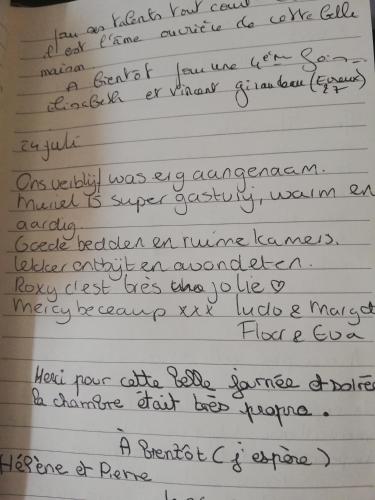 pour ses talents tout court
il est l'âme ouvrière de cette belle
maison.
A bientôt pour une 4ème fois
Elisabeth et Vincent (Evreux
27
24 juli
Ons verblijf was erg aangenaam.
Muriel is super gastvrij, warm en
aardig.
Goede bedden en ruime kamers.
lekker ontbijt en avondeten.
Roxy c'est très jolie ♡
Mercy beceaup xxx ludo & Margot
Floor & Eva
Merci pour cette belle journée et soirée
la chambre était très propre.
À bientôt (j'espère)
Hélène et Pierre